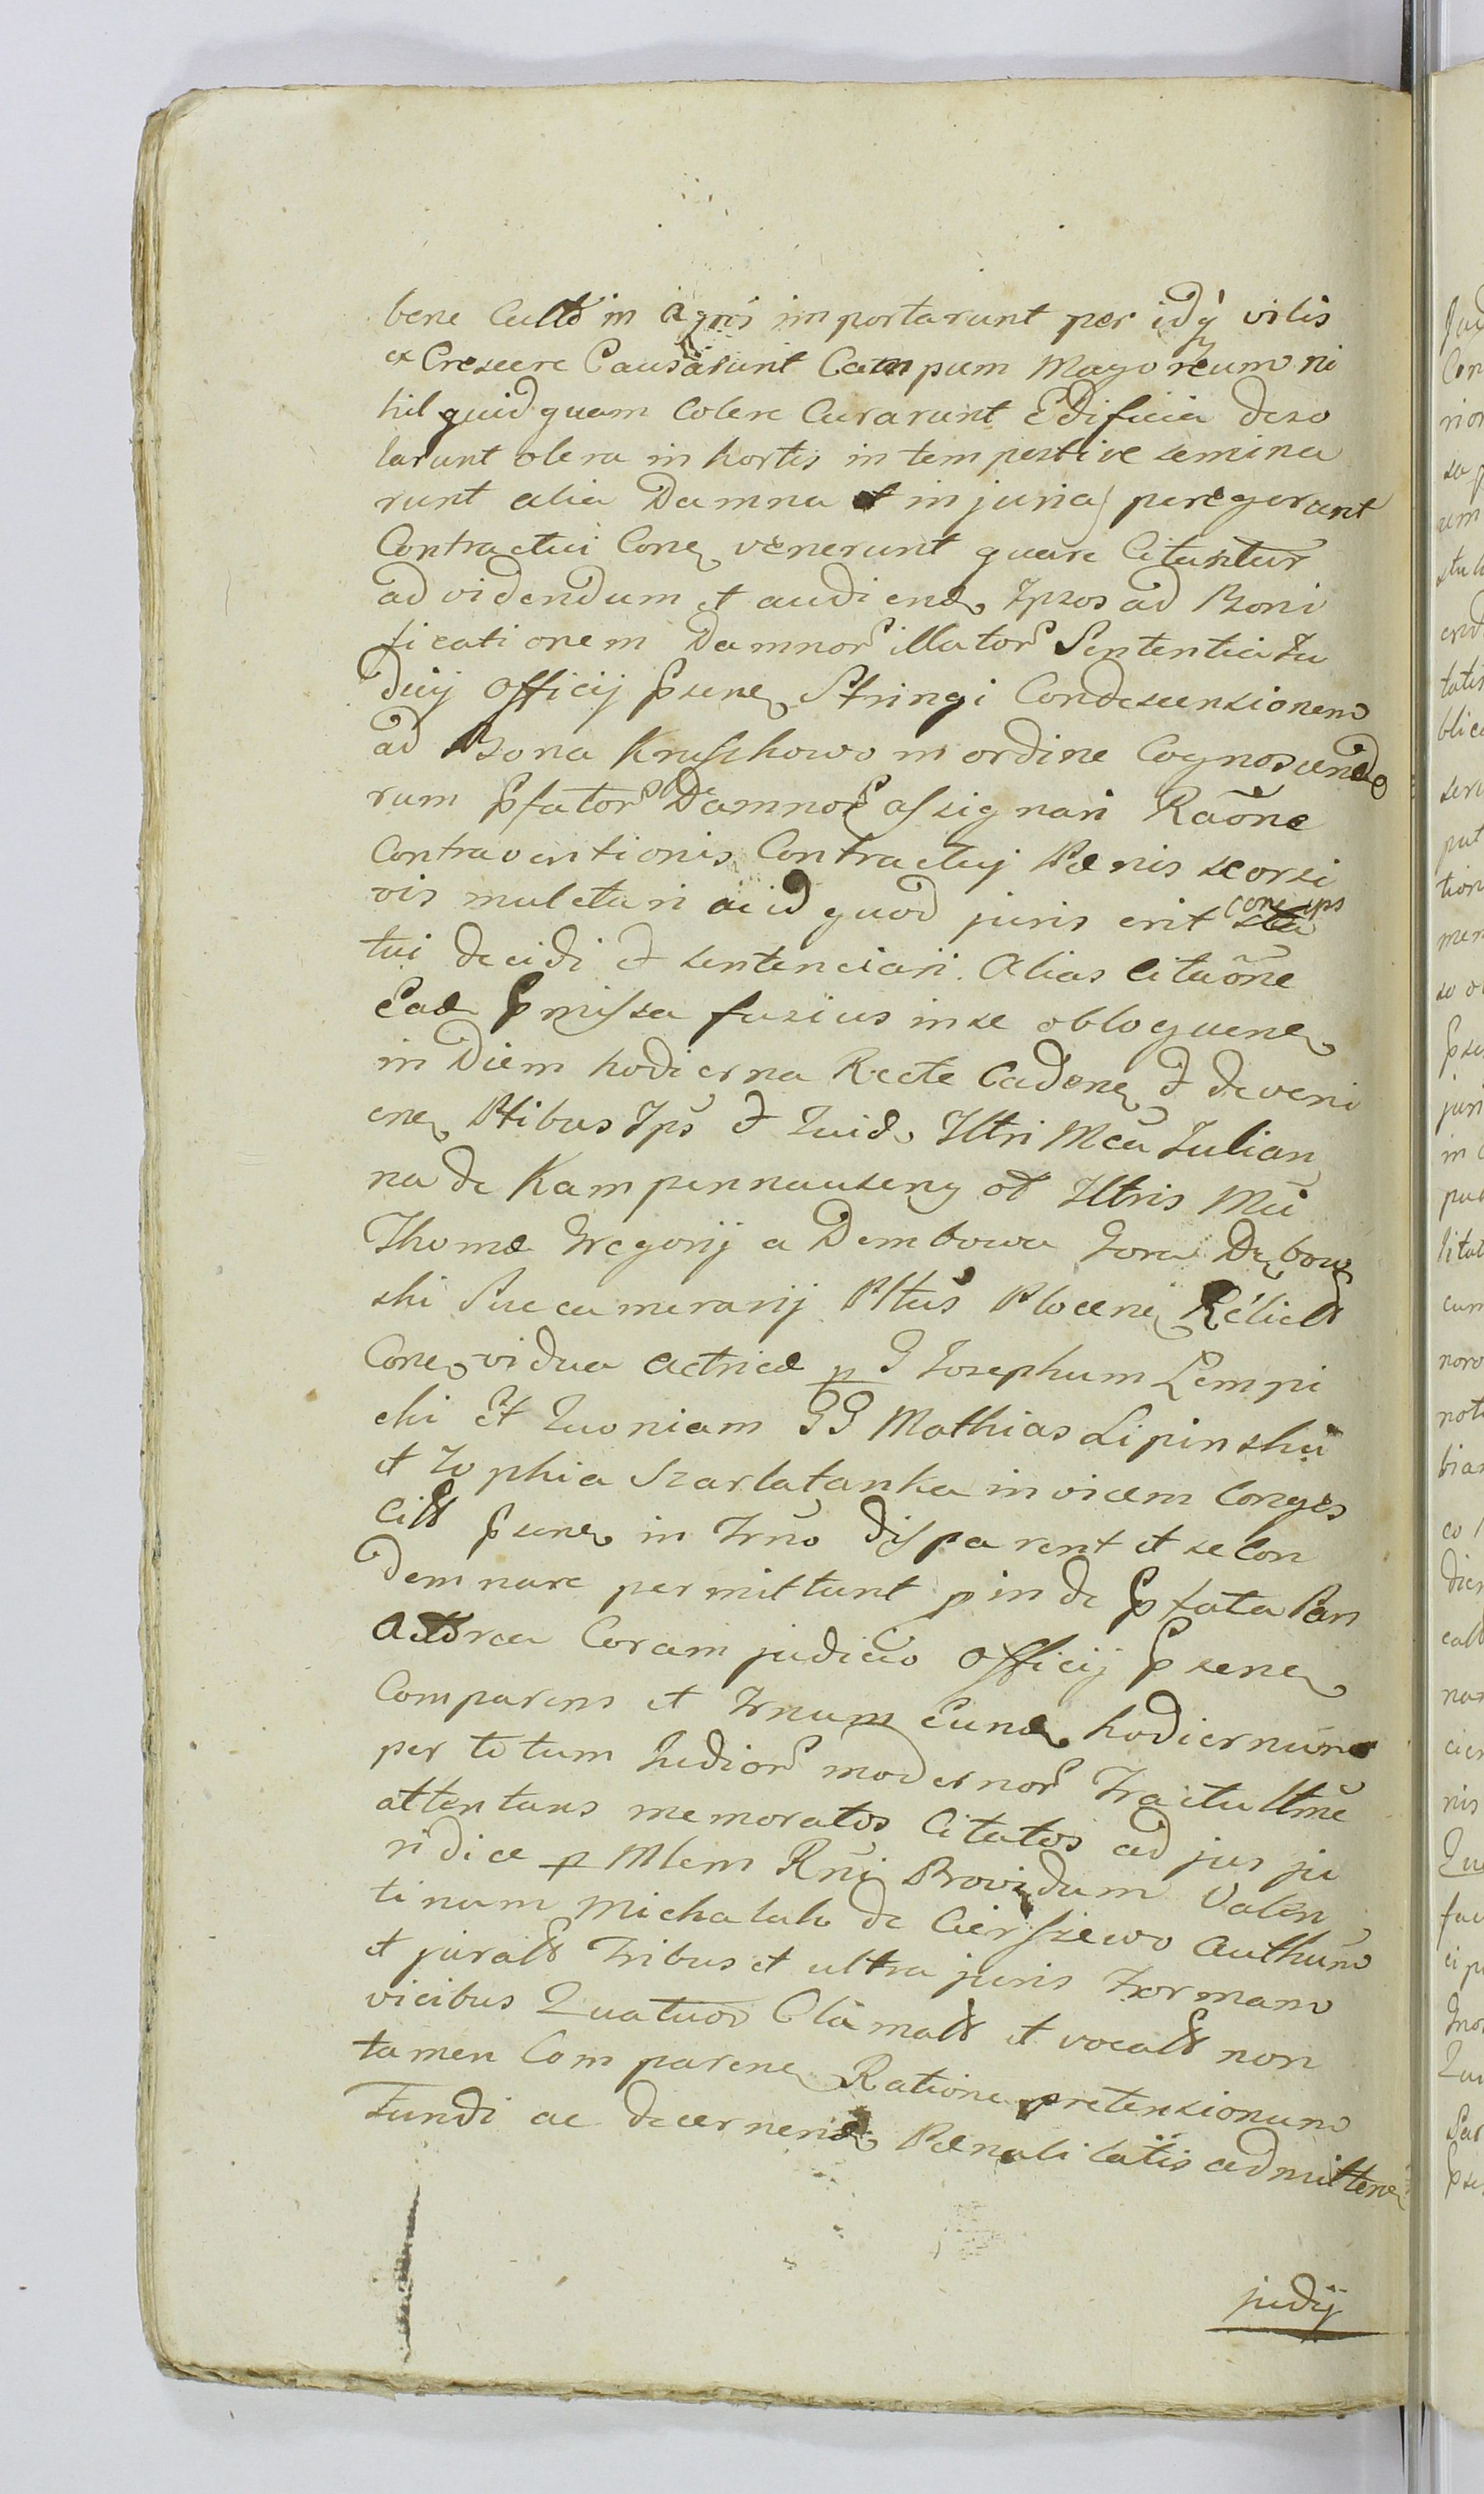 bene Cultō in agrōs importarunt per idq̃ vilis
excrescere Causarunt Campum Mago reum ni
hil quidquam Colere Curarunt Edificia deso
larunt olera in hortis in tempestive semina
runt alia Damna et injurias peregerant
Contractui Cone venerunt quare Citantur
ad videndum et audiend Ipsos ad Boni
ficationem Damnor illator Sententia Ju
dicij Officij Psene Stringi Condescensionem
ad Bona Kruschowo in ordine Cognoscendo
rum Pfator Damnor assignari Raõne
Contraventionis Contractuj Pænis seorsi
vis mulctari ac id quod juris erit cone ips
tui decidi et sentenciari. Alias Cituõne
Ead pmissa fusius in se obloquene
in Diem hodierna Recte Cadene et deveni
ene Ptibus Ips et Quid Iltri Mca Julian
na de Kampennauseny ol Iltris Mci
Thomæ Gregorij a Dembowa Gora Dębow
ski Succamerarij Pltus Plocene Relictō
Cone vidua actricæ p G Josephum Lempi
cki Et Quoniam GG Mathias Lipinski
et Zophia Szarlatanka in vicem Conges
Citt Psene in Trno disparent et se Con
demnare permittunt pinde Pfata Pars
Actorea Coram judicio Officij Psene
Comparens et Trnum Eund hodiernum
per totum Judior modernor Tractu Ltme
attentans memoratos Citatos ad jus ju
ridice p Mlem Rnj Providum Valen
tinum Michalak de Cierszewo authum
et juratō Tribus et ultra juris Formam
vicibus Quatuor Clamatō et vocatō non
tamen Comparene Ratione pretensionum
Fundi ac decernend Pænali latis admittene
judij